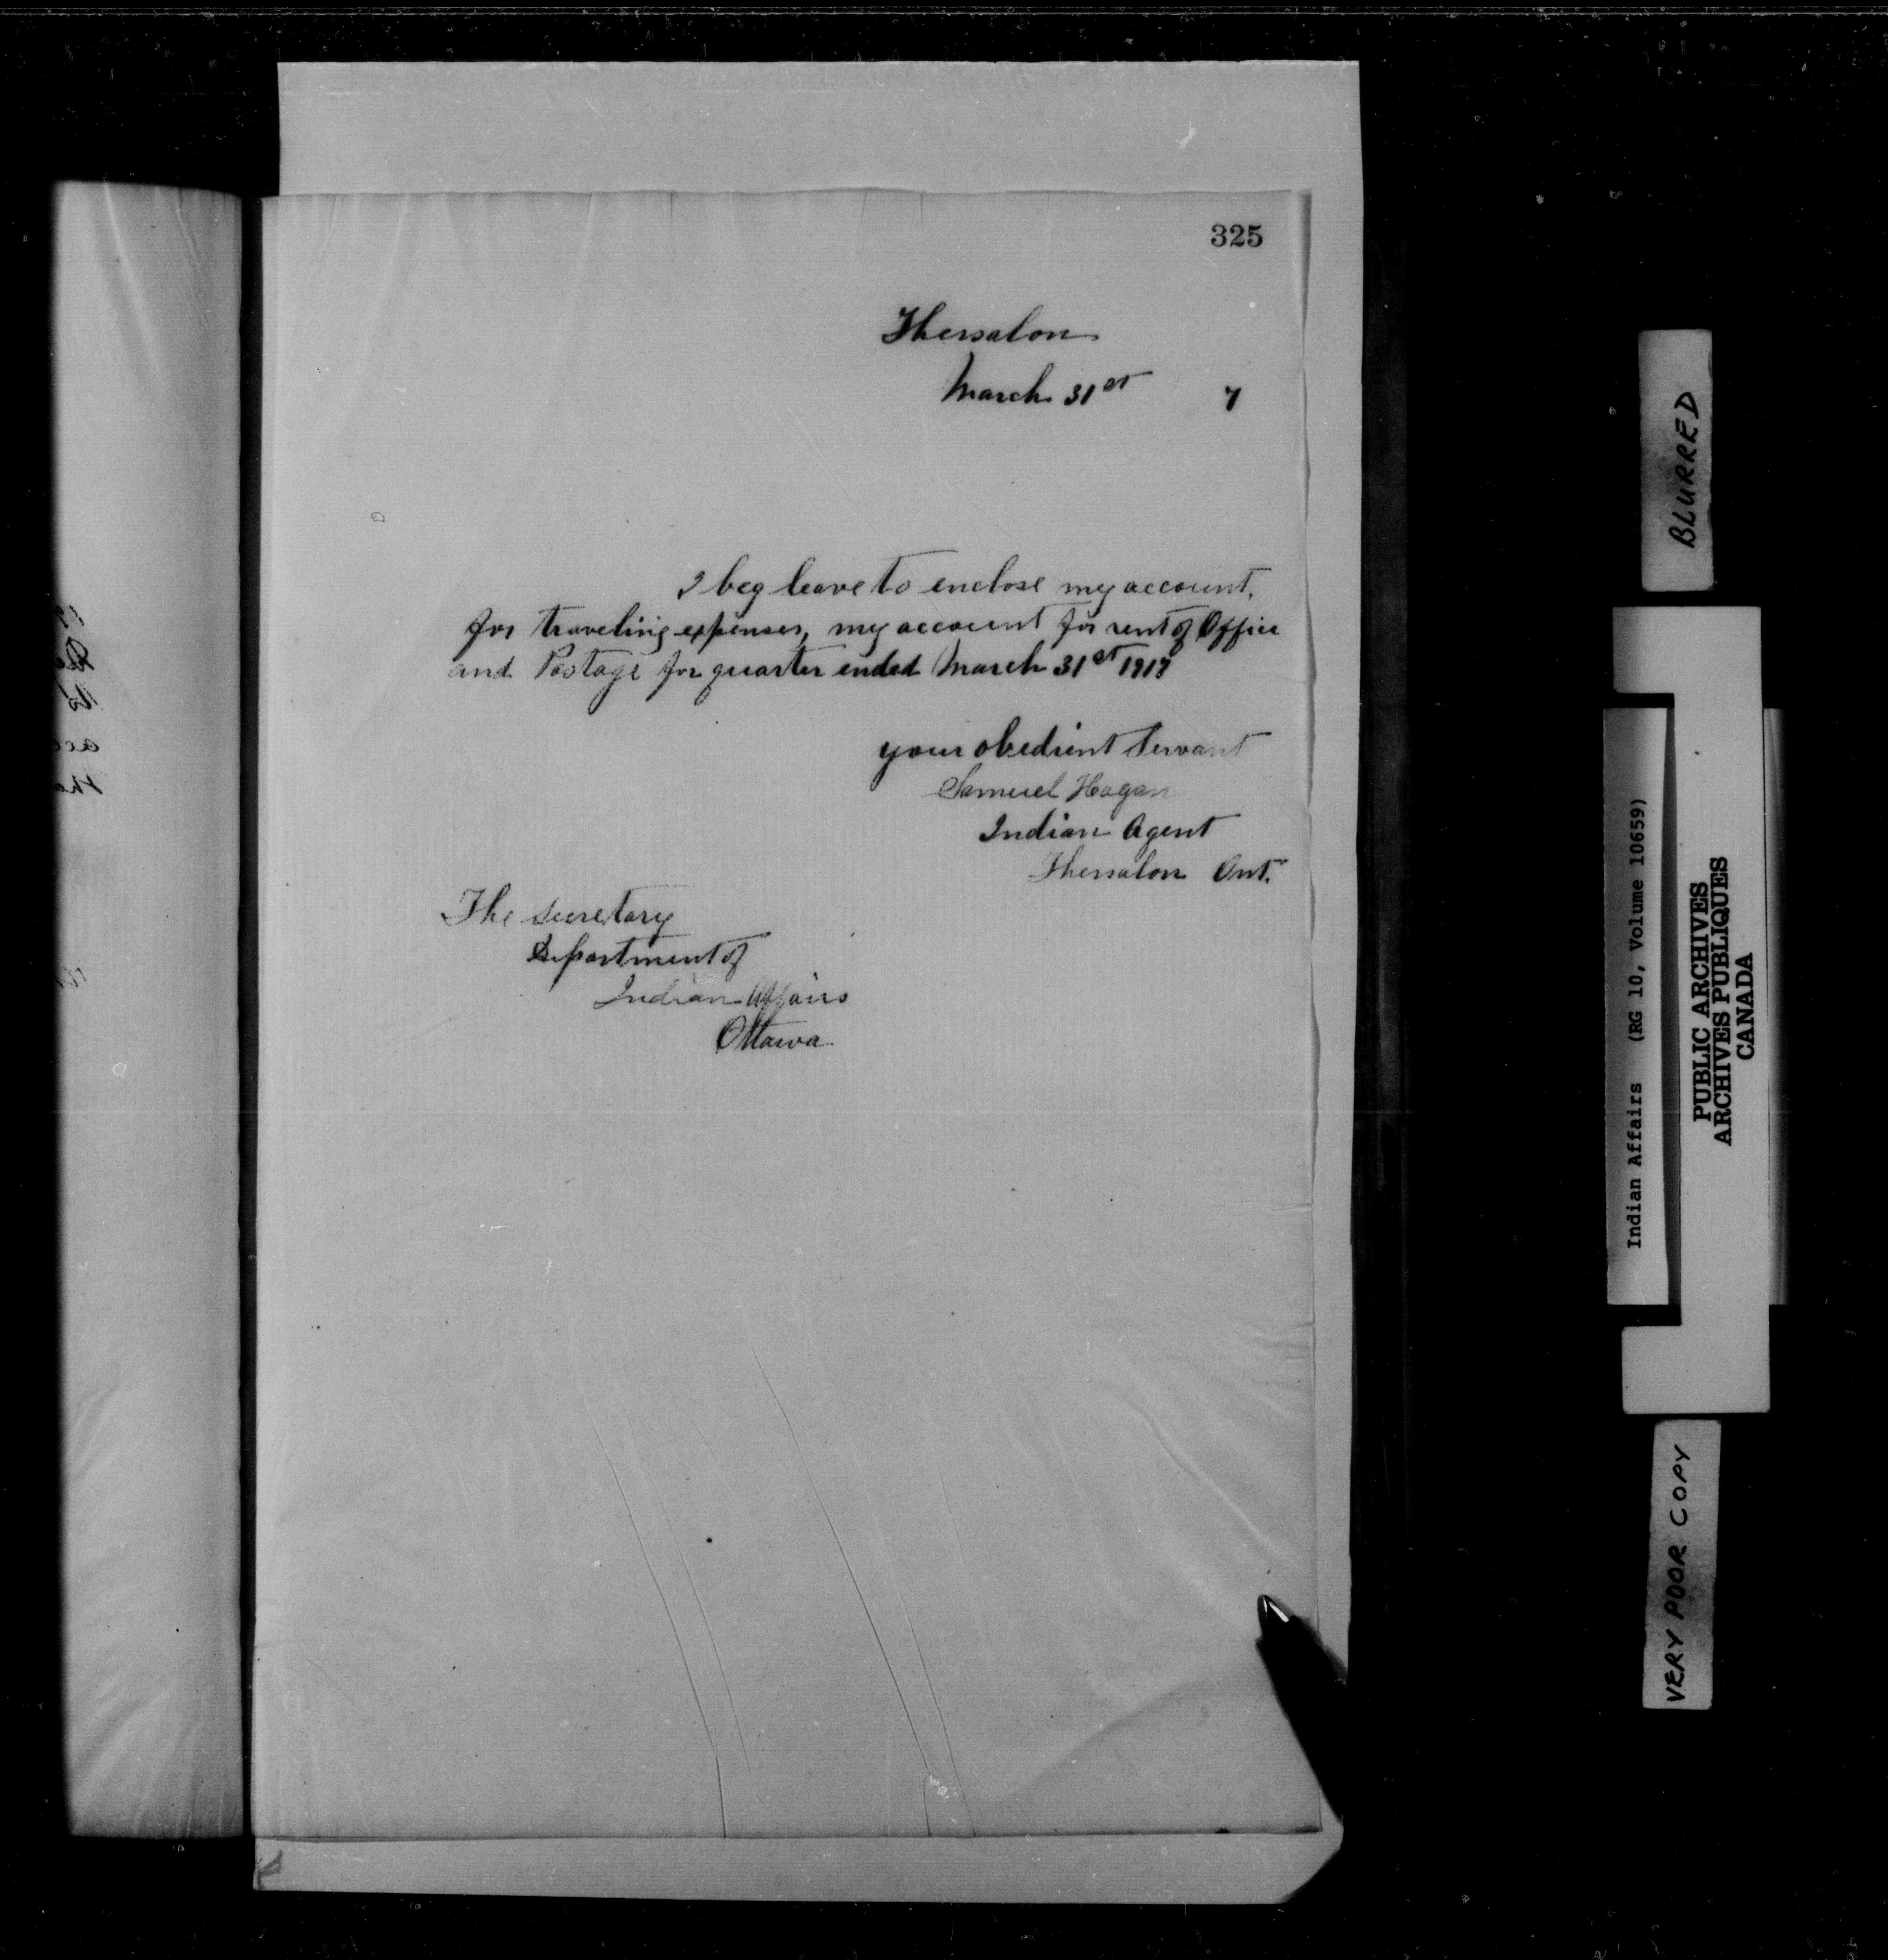 325
Thessalon
March 31st 7
I beg leave to enclose my account,
for traveling expenses, my account for rent of Office
and Postage for quarter ended March 31st 1917
your obedient Servant
Samuel Hagan
Indian Agent
Thessalon Ont.
The Secretary
Department of
Indian Affairs
Ottawa
BLURRED
Indian Affairs (RG 10, Volume 10659)
PUBLIC ARCHIVES
ARCHIVES PUBLIQUES
CANADA
VERY POOR COPY